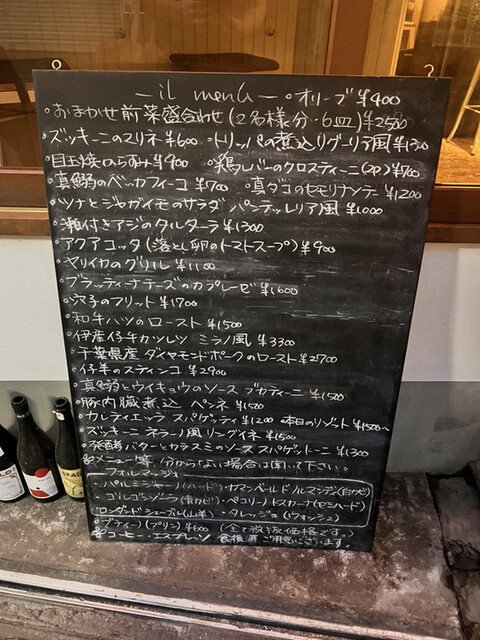 — il menu — ・オリーブ ¥400
・おまかせ前菜盛合わせ(2名様分・6皿)¥2500
・ズッキーニのスリネ ¥600 ・トリッパの煮込リグーリア風 ¥1300
・目玉焼のらすみ ¥900 ・鶏レバーのクロスティーニ(2P) ¥700
・真鰯のベッカフィーコ ¥700 ・真ダコのセモリナンテ ¥1200
・ツナとジャガイモのサラダ パンテッレリア風 ¥1000
・瀬付きアジのタルターラ ¥1300
・アクアコッタ(落とし卵のトマトスープ)¥900
・ヤリイカのグリル ¥1100
・ブラッティーナチーズのカプレーゼ ¥1600
・穴子のフリット ¥1700
・和牛ハツのロースト ¥1500
・伊産仔牛カツレツ ミラノ風 ¥3300
・千葉県産 ダイヤモンドポークのロースト ¥2700
・仔羊のスティンコ ¥2900
・真鰯とウイキョウのソース ブカティーニ ¥1500
・豚内臓煮込 ペンネ ¥1500
・カレティエッラ スパゲッティ ¥1200 本日のリゾット ¥1500〜
・ズッキーニ ネラーノ風 リングイネ ¥1500
・発酵バターとカラスミのソース スパゲットーニ ¥1300
※メニュー等、分からない場合は聞いて下さい。
フォルマッジョ
・パルミジャーノ(ハード)・カマンベール ド ノルマンディ(白カビ)
・ゴルゴンゾーラ(青カビ)・ペコリーノ トスカーナ(セミハード)
・ロンダ シェーブル(山羊)・タレッジョ(ウォッシュ)
・ブディーノ(プリン) ¥600 (全て税抜価格です。)
※コーヒー・エスプレッソ 食後酒ご用意ございます。